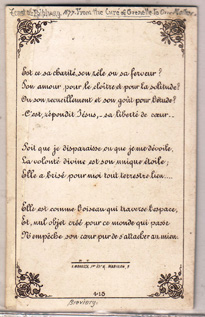 Est ce sa charité, son zèle ou sa ferveur?
Son amour pour le cloître et pour la solitude?
Ou son recueillement et son goût pour l'étude?
C'est, répondit Jésus, sa liberté de cœur..
Soit que je disparaisse ou que je me dévoile,
La volonté divine est son unique étoile;
Elle a brisé pour moi tout terrestre lien....
Elle est comme l'oiseau qui traverse l'espace,
Et, nul objet créé pour ce monde qui passe
N'empêche son cœur pur de s'attacher au mien.
Breviary.